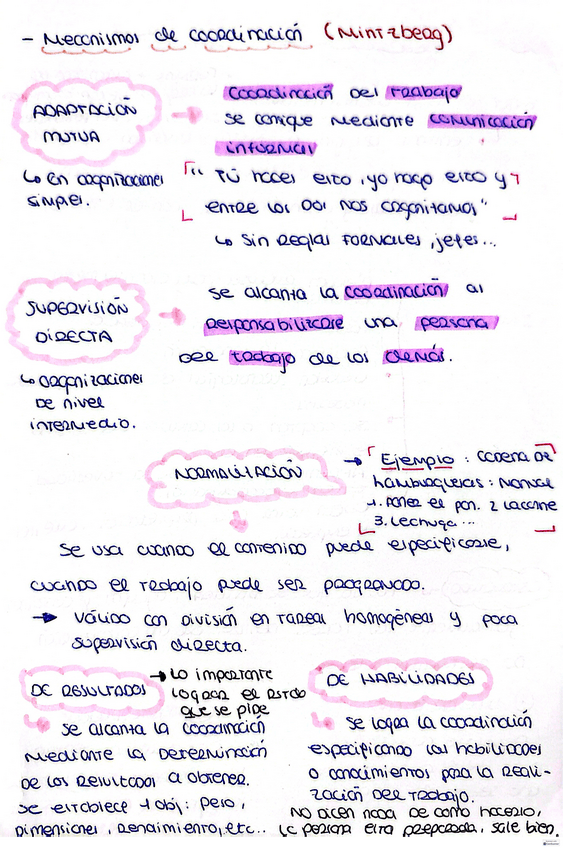 - Mecanismos de coordinación (Mintzberg)
ADAPTACIÓN
MUTUA
↳ En organizaciones
simples.
→ Coordinación del trabajo
se consigue mediante comunicación
informal
"Tú haces esto, yo hago esto y
entre los dos nos organizamos"
↳ Sin reglas formales, jefes...
SUPERVISIÓN
DIRECTA
↳ organizaciones
de nivel
intermedio.
→ Se alcanza la coordinación al
responsabilizarse una persona
del trabajo de los demás.
NORMALIZACIÓN
→ Ejemplo: cadena de
hamburguesas: Manual
1. Poner el pan. 2 La carne
3. Lechuga...
Se usa cuando el contenido puede especificarse,
cuando el trabajo puede ser programado.
→ Válido con división en tareas homogéneas y poca
supervisión directa.
DE RESULTADOS
→ Lo importante
lograr el
que se pide
↳ Se alcanza la coordinación
mediante la determinación
de los resultados a obtener.
Se establece 1 obj: peso,
dimensiones, rendimiento, etc..
DE HABILIDADES
↳ Se logra la coordinación
especificando las habilidades
o conocimientos para la reali-
zación del trabajo.
No dicen nada de como hacerlo,
la persona está preparada, sale bien.